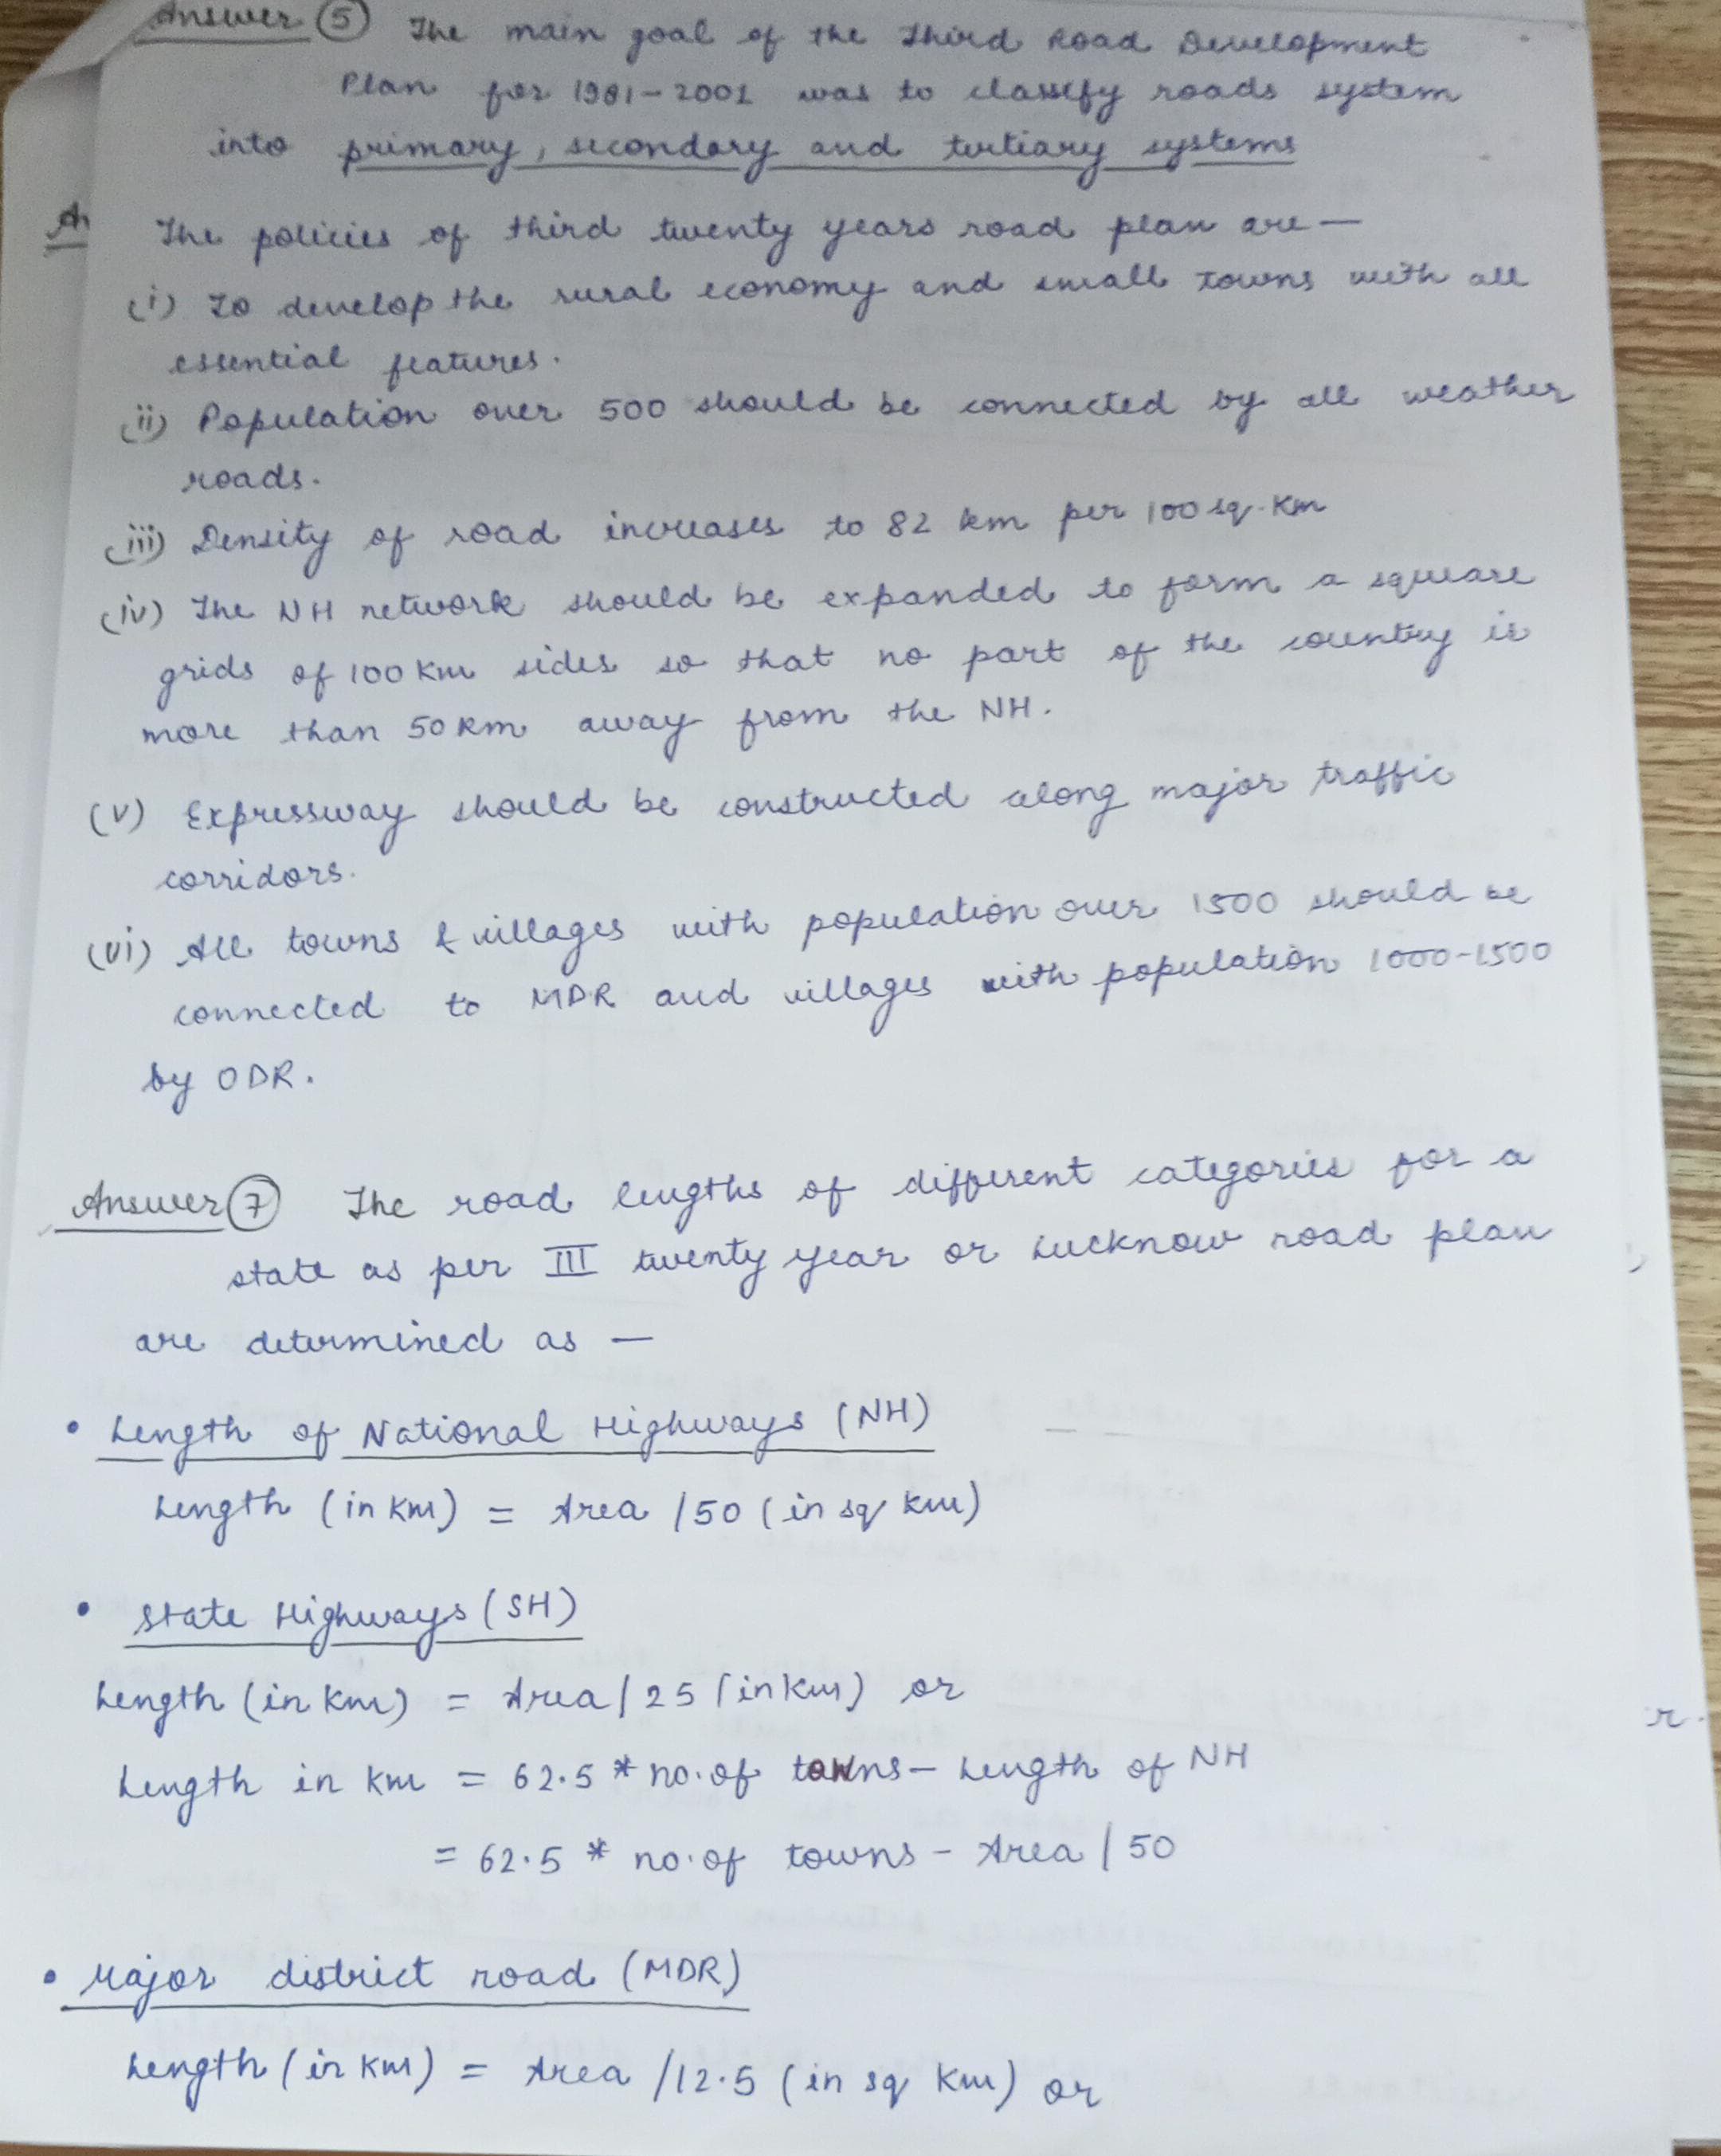 Answer (5) The main goal of the Third Road Development
Plan for 1981-2001 was to classify roads system
into primary, secondary and tertiary systems
An
The policies of third twenty years road plan are —
(i) To develop the rural economy and small towns with all
essential features.
(ii) Population over 500 should be connected by all weather
roads.
(iii) Density of road increases to 82 km per 100 sq. Km
(iv) The NH network should be expanded to form a square
grids of 100 Km sides so that no part of the country is
more than 50 Km away from the NH.
(v) Expressway should be constructed along major traffic
corridors.
(vi) All towns & villages with population over 1500 should be
connected to MDR and villages with population 1000-1500
by ODR.
Answer (7) The road lengths of different categories for a
state as per III twenty year or Lucknow road plan
are determined as —
• Length of National Highways (NH)
Length (in Km) = Area / 50 (in sq km)
• State Highways (SH)
Length (in Km) = Area / 25 (in Km) or
r.
Length in Km = 62.5 * no. of towns - Length of NH
= 62.5 * no. of towns - Area / 50
• Major district road (MDR)
Length (in Km) = Area / 12.5 (in sq Km) or